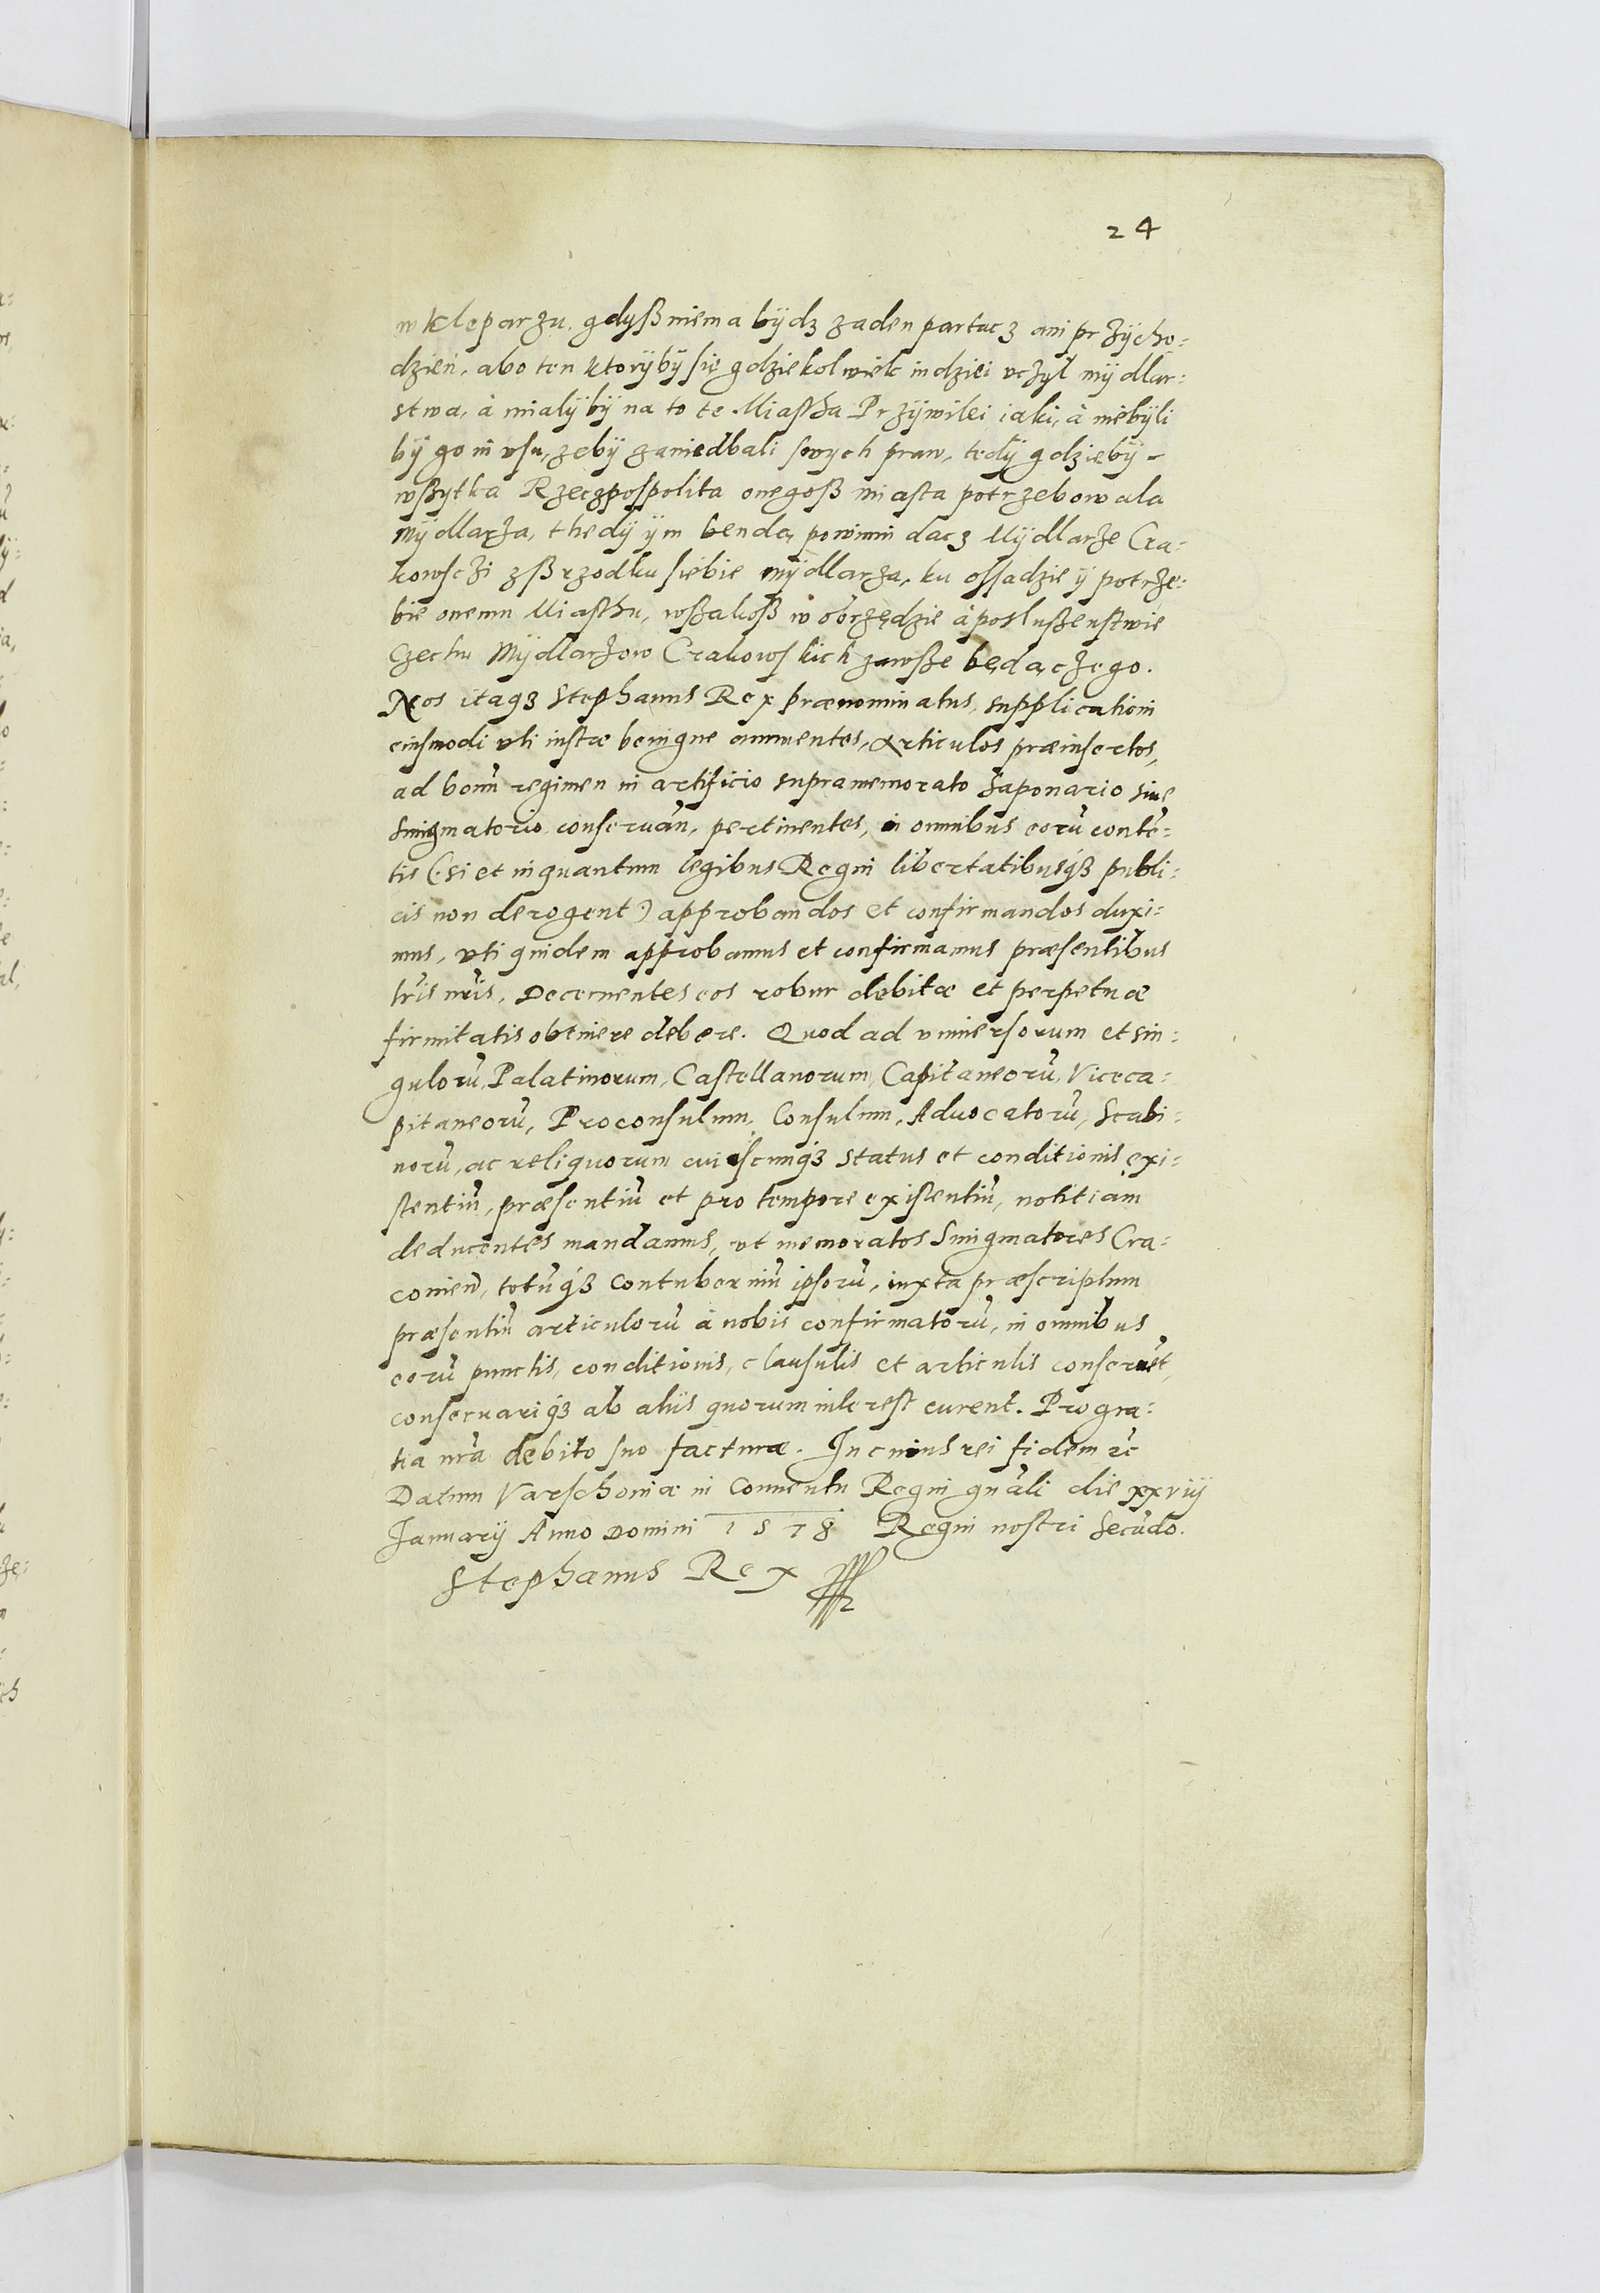 24
w kleparzu. gdyß niema bÿdz zaden partacz ani przÿcho=
dzień, abo ten ktorÿbÿ się gdziekolwiek indziei vczÿł mÿdlar=
stwa, à mialÿbÿ na to te Miastha Przÿwilei iaki, à niebÿli
bÿ go in vsu, zebÿ zaniedbali swych praw, tedÿ gdziebÿ -
wßytka Rzeczpospolita onegoß miasta potrzebowala
mÿdlarza, thedÿ ÿm bendą powinni dacz Mÿdlarze Cra=
kowsczi zßrzodku siebie mÿdlarza, ku ossadzie ÿ potrze=
bie onemu Miasthu, wßakoß w obrzędzie à poslußenstwie
Czechu Mÿdlarzow Crakowskich zawße będączego.
Nos itaqꝫ Stephanus Rex prænominatus, supplicationi
eiusmodi vti iustæ benigne annuentes, Articulos præinsertos,
ad bonū regimen in artificio supramemorato Saponario siue
Smigmatorio conseruān, pertinentes, in omnibus eorū contē=
tis (: si et inquantum legibus Regni libertatibusqꝫ publi=
cis non derogent :) approbandos et confirmandos duxi=
mus, vti quidem approbamus et confirmamus præsentibus
lr̄is nr̄is. Decernentes eos robur debitæ et perpetuæ
firmitatis obtinere debere. Quod ad vniuersorum et sin=
gulorū, Palatinorum, Castellanorum, Capitaneorū, Viceca=
pitaneorū, Proconsulum, Consulum, Aduocatorū, Scabi=
norū, ac reliquorum cuiuscunqꝫ status et conditionis exi=
stentiū, præsentiū et pro tempore existentiū, notitiam
deducentes mandamus, vt memoratos Smigmatores Cra=
couien̄, totūqꝫ Contuberniū ipsorū, iuxta præscriptum
præsentiū articulorū à nobis confirmatorū, in omnibus
eorū punctis, conditionis, clausulis et articulis conseruēt,
conseruariqꝫ ab aliis quorum interest curent. Pro gra=
tia nr̄a debito suo facturæ. In cuius rei fidem ꝛc
Datum Varschoniæ in Conuentu Regni gnāli die xxviÿ
Januarÿ Anno Domini 1578 Regni nostri Secūdo.
Stephanus Rex